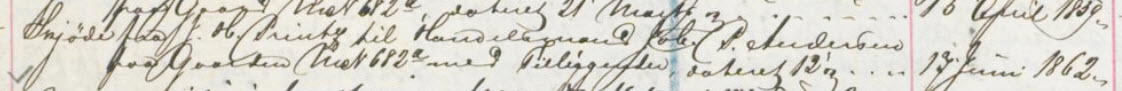 paa Gaard Mat 682a, dateret 21 Marts ... 15 April 1859.
Skjøde fra J. Chr. Printz til Handelsmand Joh. P. Andersen
paa Gaarden Mat 682a med Tilliggender, dateret 12/ .... 17 Juni 1862.